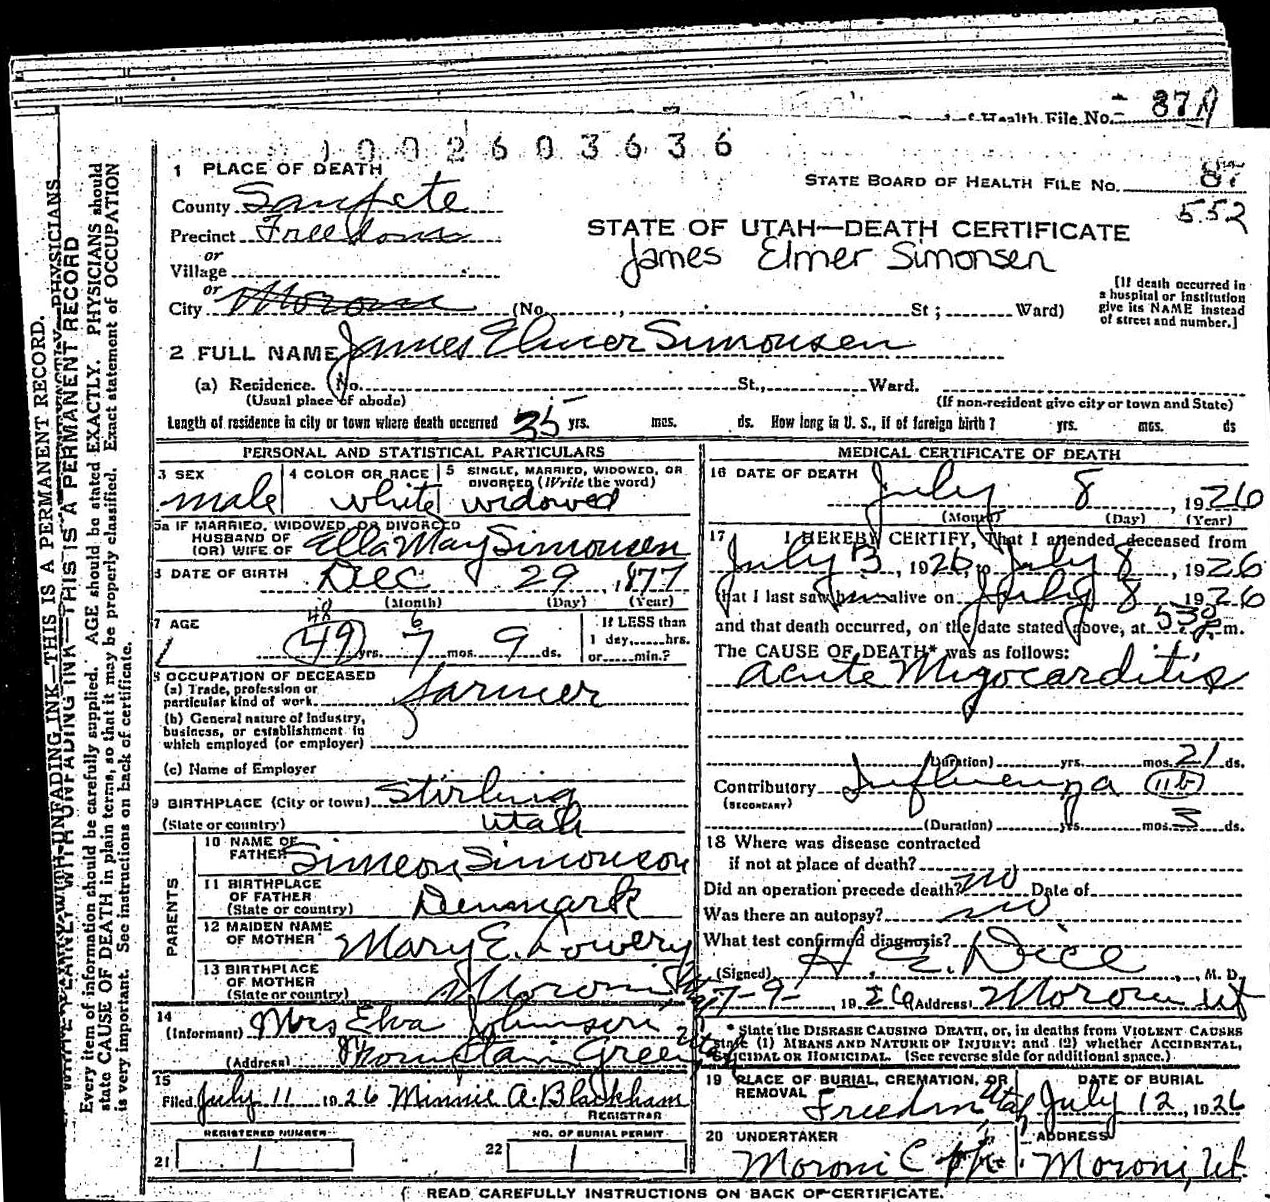 Board of Health File No. 87
1002603636
1 PLACE OF DEATH
STATE BOARD OF HEALTH FILE NO. 87
552
County Sanpete
Precinct Freedom
STATE OF UTAH—DEATH CERTIFICATE
James Elmer Simonsen
or
Village
or
City Moroni (No. , St; Ward)
[If death occurred in a hospital or institution give its NAME instead of street and number.]
2 FULL NAME James Elmer Simonsen
(a) Residence. (No. St., Ward.
(Usual place of abode) (If non-resident give city or town and State)
Length of residence in city or town where death occurred 35 yrs. mos. ds. How long in U. S., if of foreign birth? yrs. mos. ds
PERSONAL AND STATISTICAL PARTICULARS
3 SEX
male
4 COLOR OR RACE
white
5 SINGLE, MARRIED, WIDOWED, OR DIVORCED (Write the word)
widowed
5a IF MARRIED, WIDOWED, OR DIVORCED
HUSBAND OF
(OR) WIFE OF Ella May Simonsen
6 DATE OF BIRTH Dec 29, 1877
(Month) (Day) (Year)
7 AGE
48 6
49 yrs. 7 mos. 9 ds.
If LESS than
1 day, hrs.
or min.?
8 OCCUPATION OF DECEASED
(a) Trade, profession or
particular kind of work farmer
(b) General nature of industry,
business, or establishment in
which employed (or employer)
(c) Name of Employer
9 BIRTHPLACE (City or town) Stirling
(State or country) Utah
PARENTS
10 NAME OF
FATHER Simeon Simonson
11 BIRTHPLACE
OF FATHER
(State or country) Denmark
12 MAIDEN NAME
OF MOTHER Mary E. Lowery
13 BIRTHPLACE
OF MOTHER
(State or country) Moroni Utah
14
(Informant) Mrs Elva Johnson
(Address) Fountain Green Utah
15
Filed July 11 1926 Minnie A. Blackham
REGISTRAR
REGISTERED NUMBER
21
NO. OF BURIAL PERMIT
22
MEDICAL CERTIFICATE OF DEATH
16 DATE OF DEATH July 8, 1926
(Month) (Day) (Year)
17 I HEREBY CERTIFY, That I attended deceased from
July 3, 1926, to July 8, 1926
that I last saw him alive on July 8, 1926
and that death occurred, on the date stated above, at m.
The CAUSE OF DEATH* was as follows:
Acute Myocarditis
(Duration) yrs. mos. 21 ds.
Contributory Influenza 11b
(SECONDARY)
(Duration) yrs. mos. 3 ds.
18 Where was disease contracted
if not at place of death?
Did an operation precede death? no Date of
Was there an autopsy? no
What test confirmed diagnosis?
(Signed) H. E. Dice, M. D.
7-9-, 1926 (Address) Moroni Ut
* State the DISEASE CAUSING DEATH, or, in deaths from VIOLENT CAUSES
state (1) MEANS AND NATURE OF INJURY; and (2) whether ACCIDENTAL,
SUICIDAL OR HOMICIDAL. (See reverse side for additional space.)
19 PLACE OF BURIAL, CREMATION, OR
REMOVAL Freedom Utah
DATE OF BURIAL
July 12, 1926
20 UNDERTAKER
Moroni
ADDRESS
Moroni, Ut
READ CAREFULLY INSTRUCTIONS ON BACK OF CERTIFICATE.
WRITE PLAINLY WITH UNFADING INK—THIS IS A PERMANENT RECORD
Every item of information should be carefully supplied. AGE should be stated EXACTLY. PHYSICIANS should
state CAUSE OF DEATH in plain terms, so that it may be properly classified. Exact statement of OCCUPATION
is very important. See instructions on back of certificate.